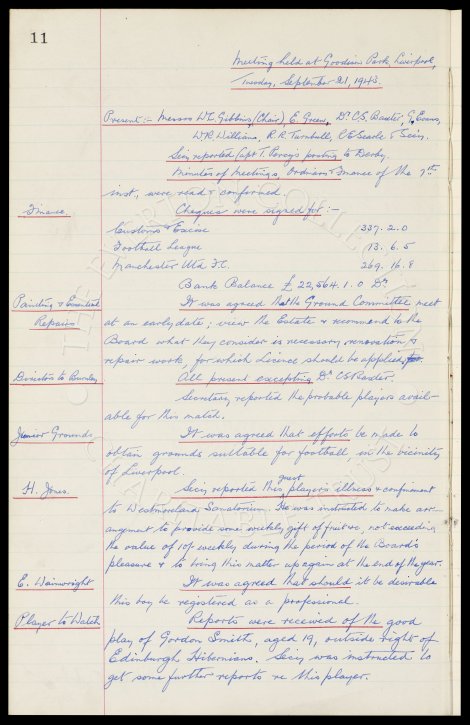 11
Meeting held at Goodison Park, Liverpool,
Tuesday, September 21, 1943.
Present:- Messrs W.C. Gibbins, (Chair), E. Green, Dr C.S. Baxter, G. Evans,
W.R. Williams, R.R. Turnbull, C.E. Searle & Secy.
Secy reported Capt T. Percy's posting to Derby.
Minutes of Meetings, Ordinary & Finance of the 7th
inst, were read & confirmed.
Finance. Cheques were signed for:-
Customs & Excise 337. 2. 0
Football League 13. 6. 5
Manchester Utd F.C. 269. 16. 8
Bank Balance £22,564. 1. 0 Dr
Painting & Essential It was agreed that the Ground Committee meet
Repairs. at an early date; view the Estate & recommend to the
Board what they consider is necessary renovation &
repair work, for which Licence should be applied for.
Directors to Burnley All present excepting Dr C.S. Baxter.
Secretary reported the probable players avail-
able for this match.
Junior Grounds. It was agreed that efforts be made to
obtain grounds suitable for football in the vicinity
of Liverpool.
H. Jones. Secy reported this guest player's illness & confinement
to Westmoreland Sanatorium. He was instructed to make arr-
angement to provide some weekly gift of fruit &c, not exceeding
the value of 10/- weekly during the period of the Board's
pleasure & to bring this matter up again at the end of the year.
E. Wainwright It was agreed that should it be desirable
this boy be registered as a professional.
Player to Watch Reports were received of the good
play of Gordon Smith, aged 19, outside right of
Edinburgh Hibernians. Secy was instructed to
get some further reports re this player.
THE EVERTON COLLECTION